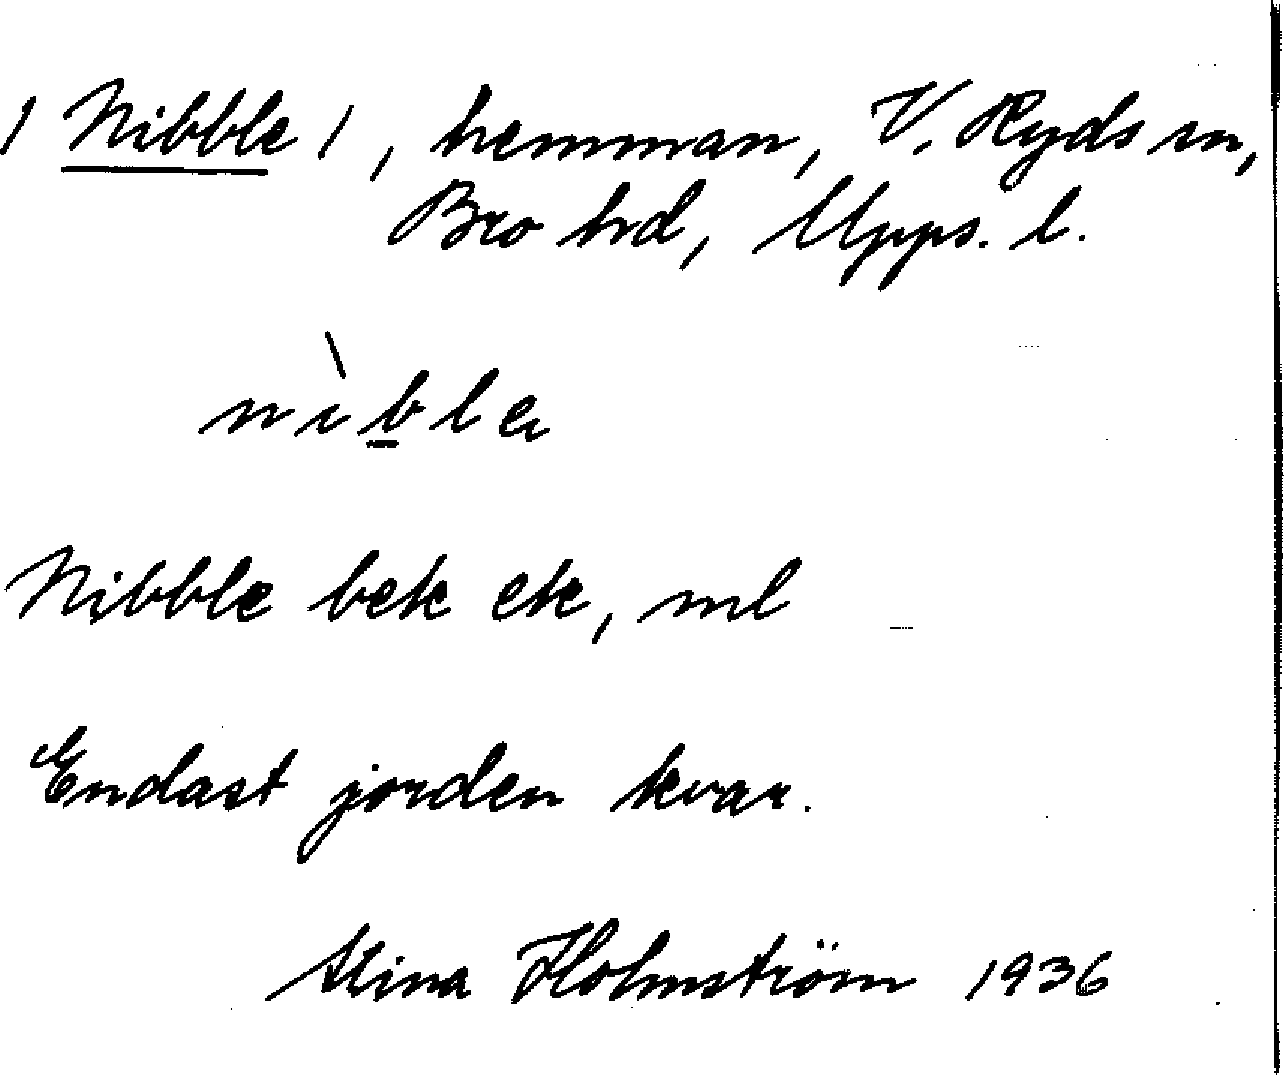 / Nibble /, hemman, V. Ryds sn,
Bro hd, Upps. l.
nìble
Nibble bek ek, ml
Endast jorden kvar.
Stina Holmström 1936